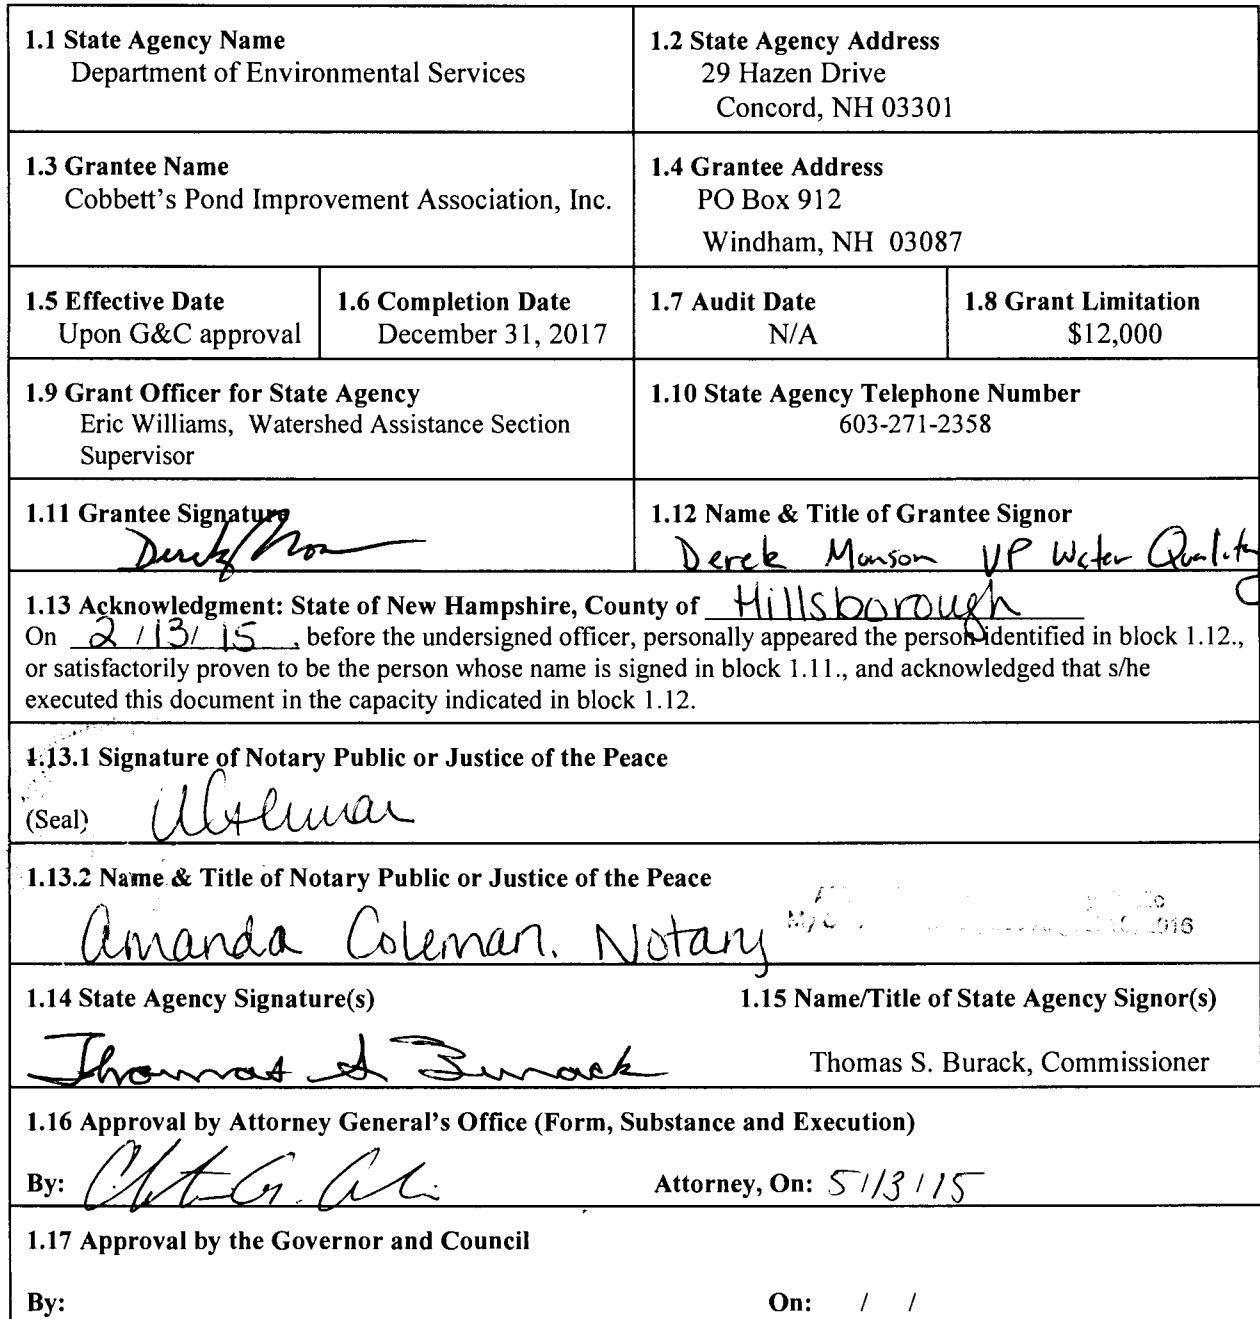 1.1 State Agency Name
Department of Environmental Services
1.2 State Agency Address
29 Hazen Drive
Concord, NH 03301
1.3 Grantee Name
Cobbett's Pond Improvement Association, Inc.
1.4 Grantee Address
PO Box 912
Windham, NH 03087
1.5 Effective Date
Upon G&C approval
1.6 Completion Date
December 31, 2017
1.7 Audit Date
N/A
1.8 Grant Limitation
$12,000
1.9 Grant Officer for State Agency
Eric Williams, Watershed Assistance Section
Supervisor
1.10 State Agency Telephone Number
603-271-2358
1.11 Grantee Signature
1.12 Name & Title of Grantee Signor
Derek Monson VP Water Quality
1.13 Acknowledgment: State of New Hampshire, County of Hillsborough
On 2/13/15, before the undersigned officer, personally appeared the person identified in block 1.12.,
or satisfactorily proven to be the person whose name is signed in block 1.11., and acknowledged that s/he
executed this document in the capacity indicated in block 1.12.
1.13.1 Signature of Notary Public or Justice of the Peace
(Seal)
1.13.2 Name & Title of Notary Public or Justice of the Peace
Amanda Coleman. Notary
1.14 State Agency Signature(s)
Thomas S Burack
1.15 Name/Title of State Agency Signor(s)
Thomas S. Burack, Commissioner
1.16 Approval by Attorney General's Office (Form, Substance and Execution)
By:
Attorney, On: 5/13/15
1.17 Approval by the Governor and Council
By:
On: / /